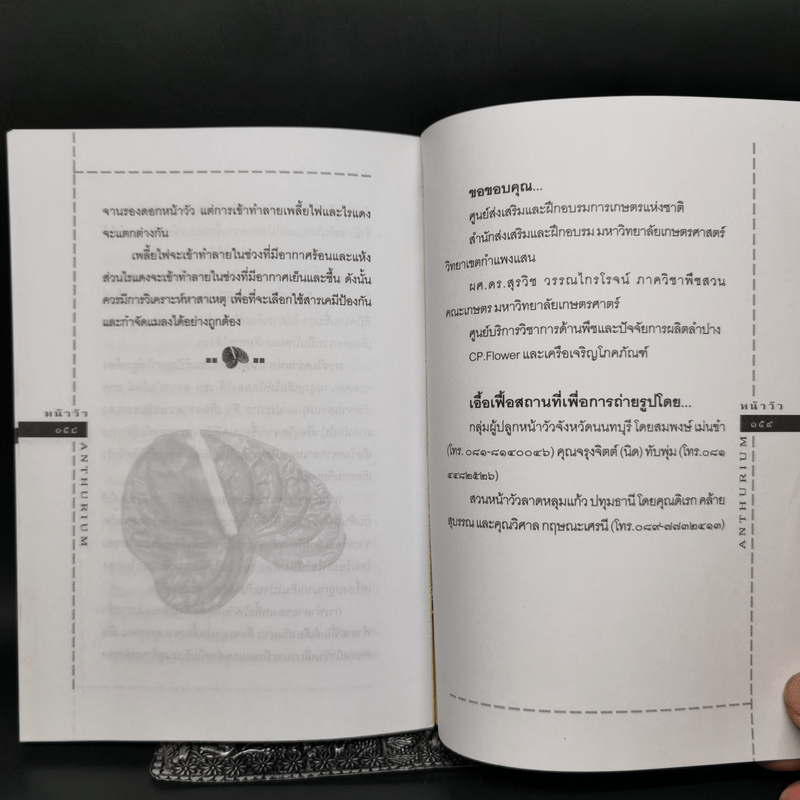 จานรองดอกหน้าวัว แต่การเข้าทำลายเพลี้ยไฟและไรแดง
จะแตกต่างกัน
เพลี้ยไฟจะเข้าทำลายในช่วงที่มีอากาศร้อนและแห้ง
ส่วนไรแดงจะเข้าทำลายในช่วงที่มีอากาศเย็นและชื้น ดังนั้น
ควรมีการวิเคราะห์หาสาเหตุ เพื่อที่จะเลือกใช้สารเคมีป้องกัน
และกำจัดแมลงได้อย่างถูกต้อง
หน้าวัว
๑๕๘
ANTHURIUM
ขอขอบคุณ...
ศูนย์ส่งเสริมและฝึกอบรมการเกษตรแห่งชาติ
สำนักส่งเสริมและฝึกอบรม มหาวิทยาลัยเกษตรศาสตร์
วิทยาเขตกำแพงแสน
ผศ.ดร.สุรวิช วรรณไกรโรจน์ ภาควิชาพืชสวน
คณะเกษตร มหาวิทยาลัยเกษตรศาตร์
ศูนย์บริการวิชาการด้านพืชและปัจจัยการผลิตลำปาง
CP.Flower และเครือเจริญโภคภัณฑ์
เอื้อเฟื้อสถานที่เพื่อการถ่ายรูปโดย...
กลุ่มผู้ปลูกหน้าวัวจังหวัดนนทบุรี โดยสมพงษ์ เม่นขำ
(โทร.๐๘๑-๘๑๔๐๐๔๖) คุณจรุงจิตต์ (นิด) ทับพุ่ม (โทร.๐๘๑
๔๔๘๒๕๒๖)
สวนหน้าวัวลาดหลุมแก้ว ปทุมธานี โดยคุณดิเรก คล้าย
สุบรรณ และคุณวิศาล กฤษณะเศรนี (โทร.๐๘๙-๗๗๓๒๔๑๓)
หน้าวัว
๑๕๙
ANTHURIUM